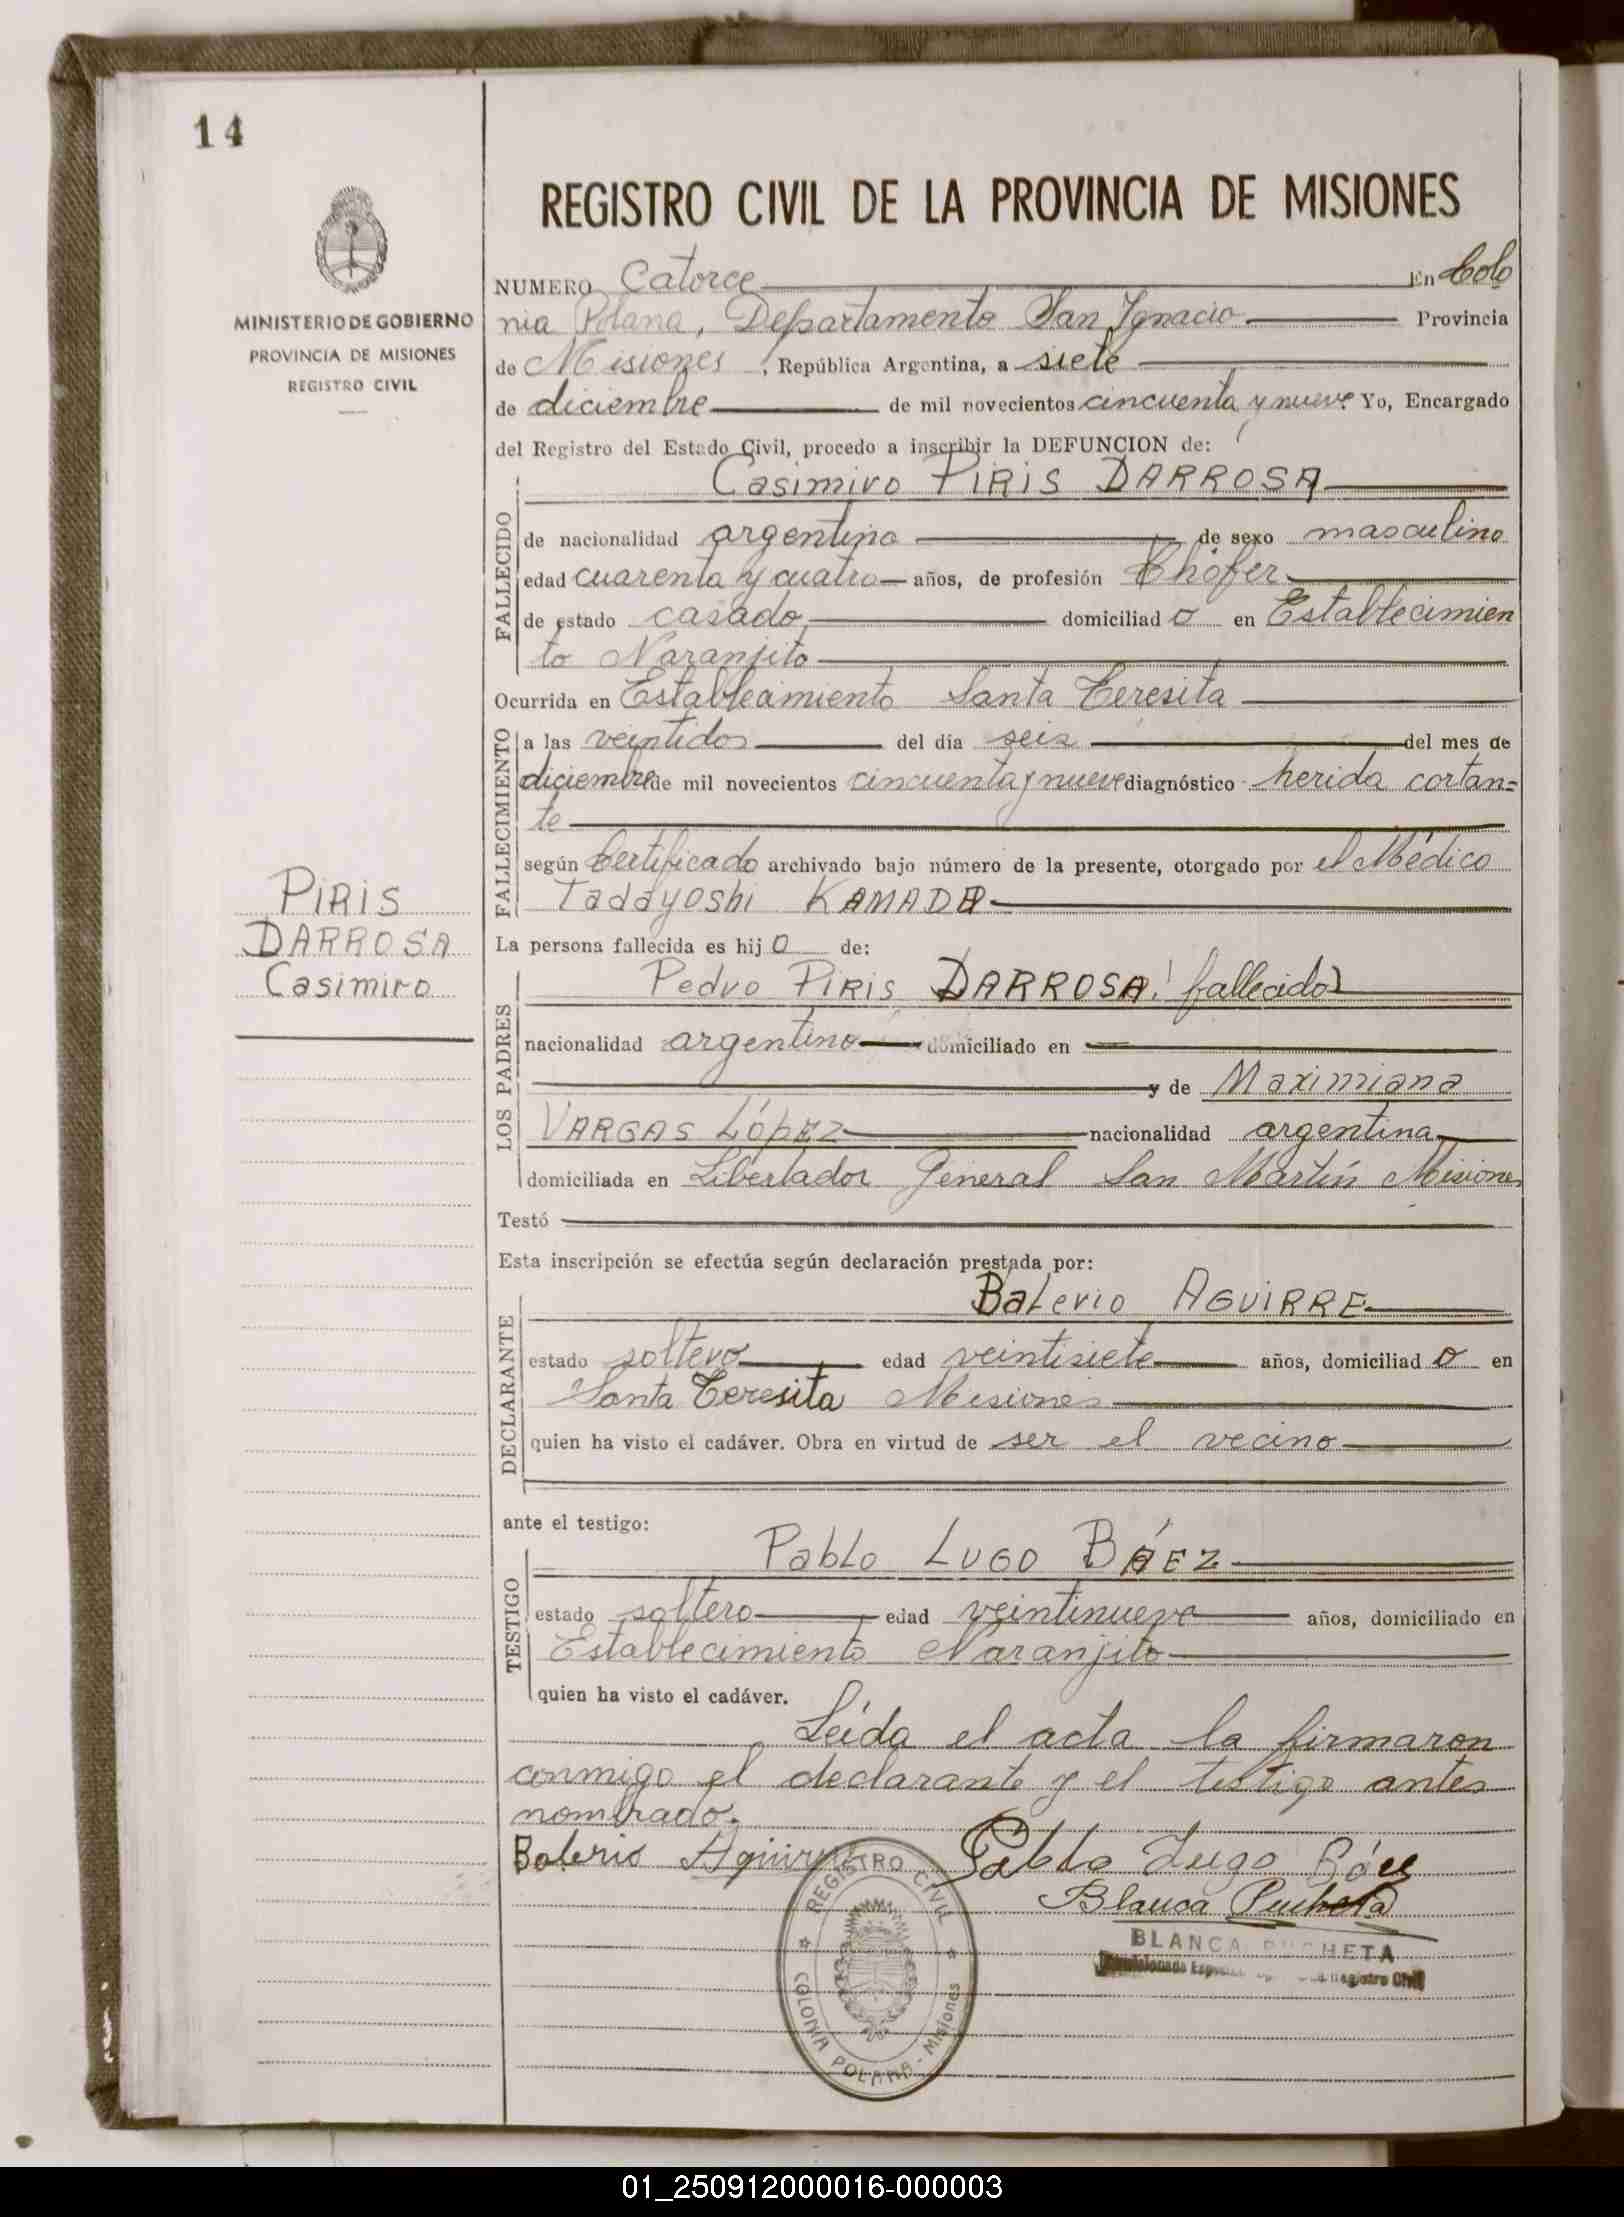 14
MINISTERIO DE GOBIERNO
PROVINCIA DE MISIONES
REGISTRO CIVIL
PIRIS
DARROSA
Casimiro
REGISTRO CIVIL DE LA PROVINCIA DE MISIONES
NUMERO Catorce En Colo
nia Polana, Departamento San Ignacio Provincia
de Misiones, República Argentina, a siete
de diciembre de mil novecientos cincuenta y nueve Yo, Encargado
del Registro del Estado Civil, procedo a inscribir la DEFUNCION de:
Casimiro PIRIS DARROSA
FALLECIDO
de nacionalidad argentino de sexo masculino
edad cuarenta y cuatro años, de profesión Chófer
de estado casado domiciliad o en Establecimien
to Naranjito
Ocurrida en Establecimiento Santa Teresita
FALLECIMIENTO
a las veintidos del día seis del mes de
diciembre de mil novecientos cincuenta y nueve diagnóstico herida cortan=
te
según Certificado archivado bajo número de la presente, otorgado por el Médico
Tadayoshi KAMADA
La persona fallecida es hij o de:
LOS PADRES
Pedro PIRIS DARROSA (fallecido)
nacionalidad argentino domiciliado en
y de Maximiana
VARGAS LÓPEZ nacionalidad argentina
domiciliada en Libertador General San Martín Misiones
Testó
Esta inscripción se efectúa según declaración prestada por:
DECLARANTE
Balerio AGUIRRE
estado soltero edad veintisiete años, domiciliad o en
Santa Teresita Misiones
quien ha visto el cadáver. Obra en virtud de ser el vecino
ante el testigo:
TESTIGO
Pablo LUGO BÁEZ
estado soltero edad veintinueve años, domiciliado en
Establecimiento Naranjito
quien ha visto el cadáver.
Leída el acta la firmaron
conmigo el declarante y el testigo antes
nombrado.
Balerio Aguirre Pablo Lugo Báez
Blanca Pucheta
BLANCA PUCHETA
Registro Civil
REGISTRO CIVIL
COLONIA POLANA - Misiones
01_250912000016-000003